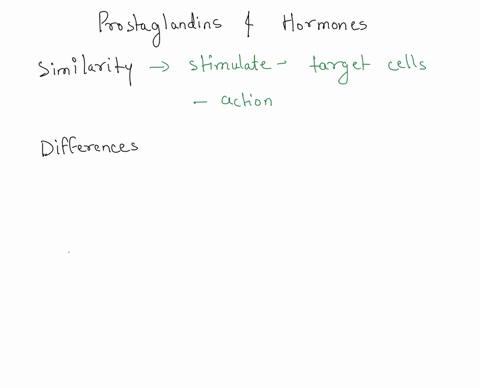 Prostaglandins & Hormones
Similarity → stimulate - target cells
- action
Differences